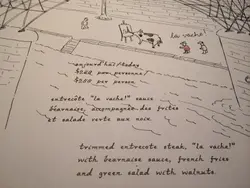 la vache!
aujourd'hui/today
per personne/
per person
entrecôte "la vache!" sauce
béarnaise, accompagnée des frites
et salade verte aux noix.
trimmed entrecote steak, "la vache!"
with bearnaise sauce, french fries
and green salad with walnuts.